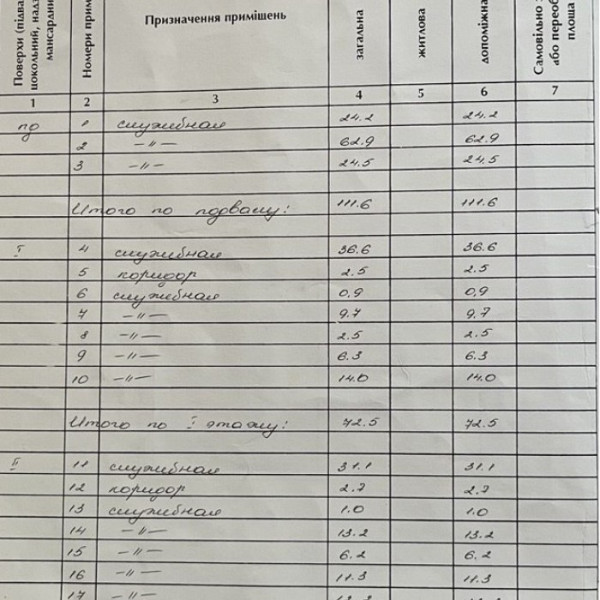 Поверхи (підва
цокольний, надз
мансардни
Номери прим
Призначення приміщень
загальна
житлова
допоміжна
Самовільно з
або переоб
площа
1 2 3 4 5 6 7
пд 1 служибная 24.2 24.2
2 —〃— 62.9 62.9
3 —〃— 24.5 24.5
Итого по подвалу: 111.6 111.6
I 4 служибная 36.6 36.6
5 коридор 2.5 2.5
6 служибная 0,9 0,9
7 —〃— 9.7 9.7
8 —〃— 2.5 2.5
9 —〃— 6.3 6.3
10 —〃— 14.0 14.0
Итого по I этажу: 72.5 72.5
II 11 служибная 31.1 31.1
12 коридор 2.7 2.7
13 служибная 1.0 1.0
14 —〃— 13.2 13.2
15 —〃— 6.2 6.2
16 —〃— 11.3 11.3
17 —〃—